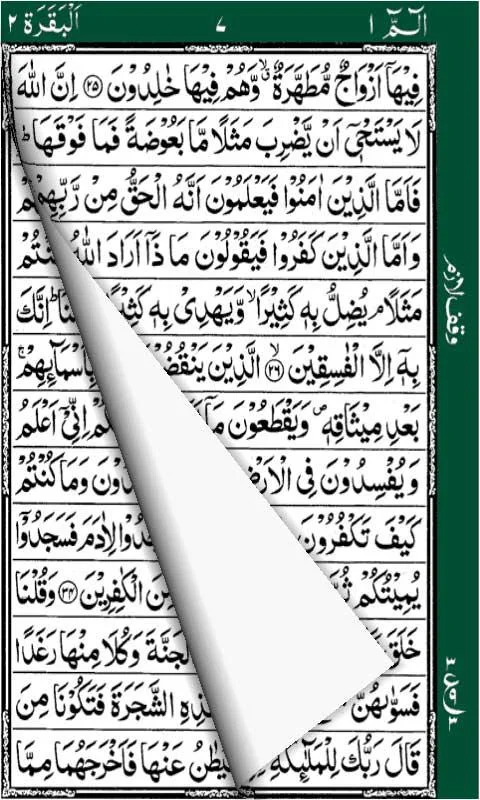 الٓمّٓ ١ ٧ اَلْبَقَرَة ٢
فِيْهَاۤ اَزْوَاجٌ مُّطَهَّرَةٌ ۙ وَّهُمْ فِيْهَا خٰلِدُوْنَ ﴿٢٥﴾ اِنَّ اللّٰهَ
لَا يَسْتَحْيٖۤ اَنْ يَّضْرِبَ مَثَلًا مَّا بَعُوْضَةً فَمَا فَوْقَهَا ؕ
فَاَمَّا الَّذِيْنَ اٰمَنُوْا فَيَعْلَمُوْنَ اَنَّهُ الْحَقُّ مِنْ رَّبِّهِمْ
وَاَمَّا الَّذِيْنَ كَفَرُوْا فَيَقُوْلُوْنَ مَا ذَاۤ اَرَادَ اللّٰهُ نْتُمْ
مَثَلًا ۘ يُضِلُّ بِهٖ كَثِيْرًا ۙ وَّيَهْدِىْ بِهٖ كَثِيْرً نَا ؕ اِنَّكَ
بِهٖۤ اِلَّا الْفٰسِقِيْنَ ۙ ﴿٢٦﴾ الَّذِيْنَ يَنْقُضُ بِاَسْمَآئِهِمْ ۚ
بَعْدِ مِيْثَاقِهٖ ۪ وَيَقْطَعُوْنَ مَاۤ كُمْ اِنِّىْۤ اَعْلَمُ
وَيُفْسِدُوْنَ فِى الْاَرْضِ دُوْنَ وَمَا كُنْتُمْ
كَيْفَ تَكْفُرُوْنَ جُدُوْا لِاٰدَمَ فَسَجَدُوْۤا
يُمِيْتُكُمْ ثُمَّ نَ الْكٰفِرِيْنَ ﴿٣٤﴾ وَقُلْنَا
خَلَقَ الْجَنَّةَ وَكُلَا مِنْهَا رَغَدًا
فَسَوّٰىهُنَّ ذِهِ الشَّجَرَةَ فَتَكُوْنَا مِنَ
قَالَ رَبُّكَ لِلْمَلٰٓئِكَةِ يْطٰنُ عَنْهَا فَاَخْرَجَهُمَا مِمَّا
وقف لازم